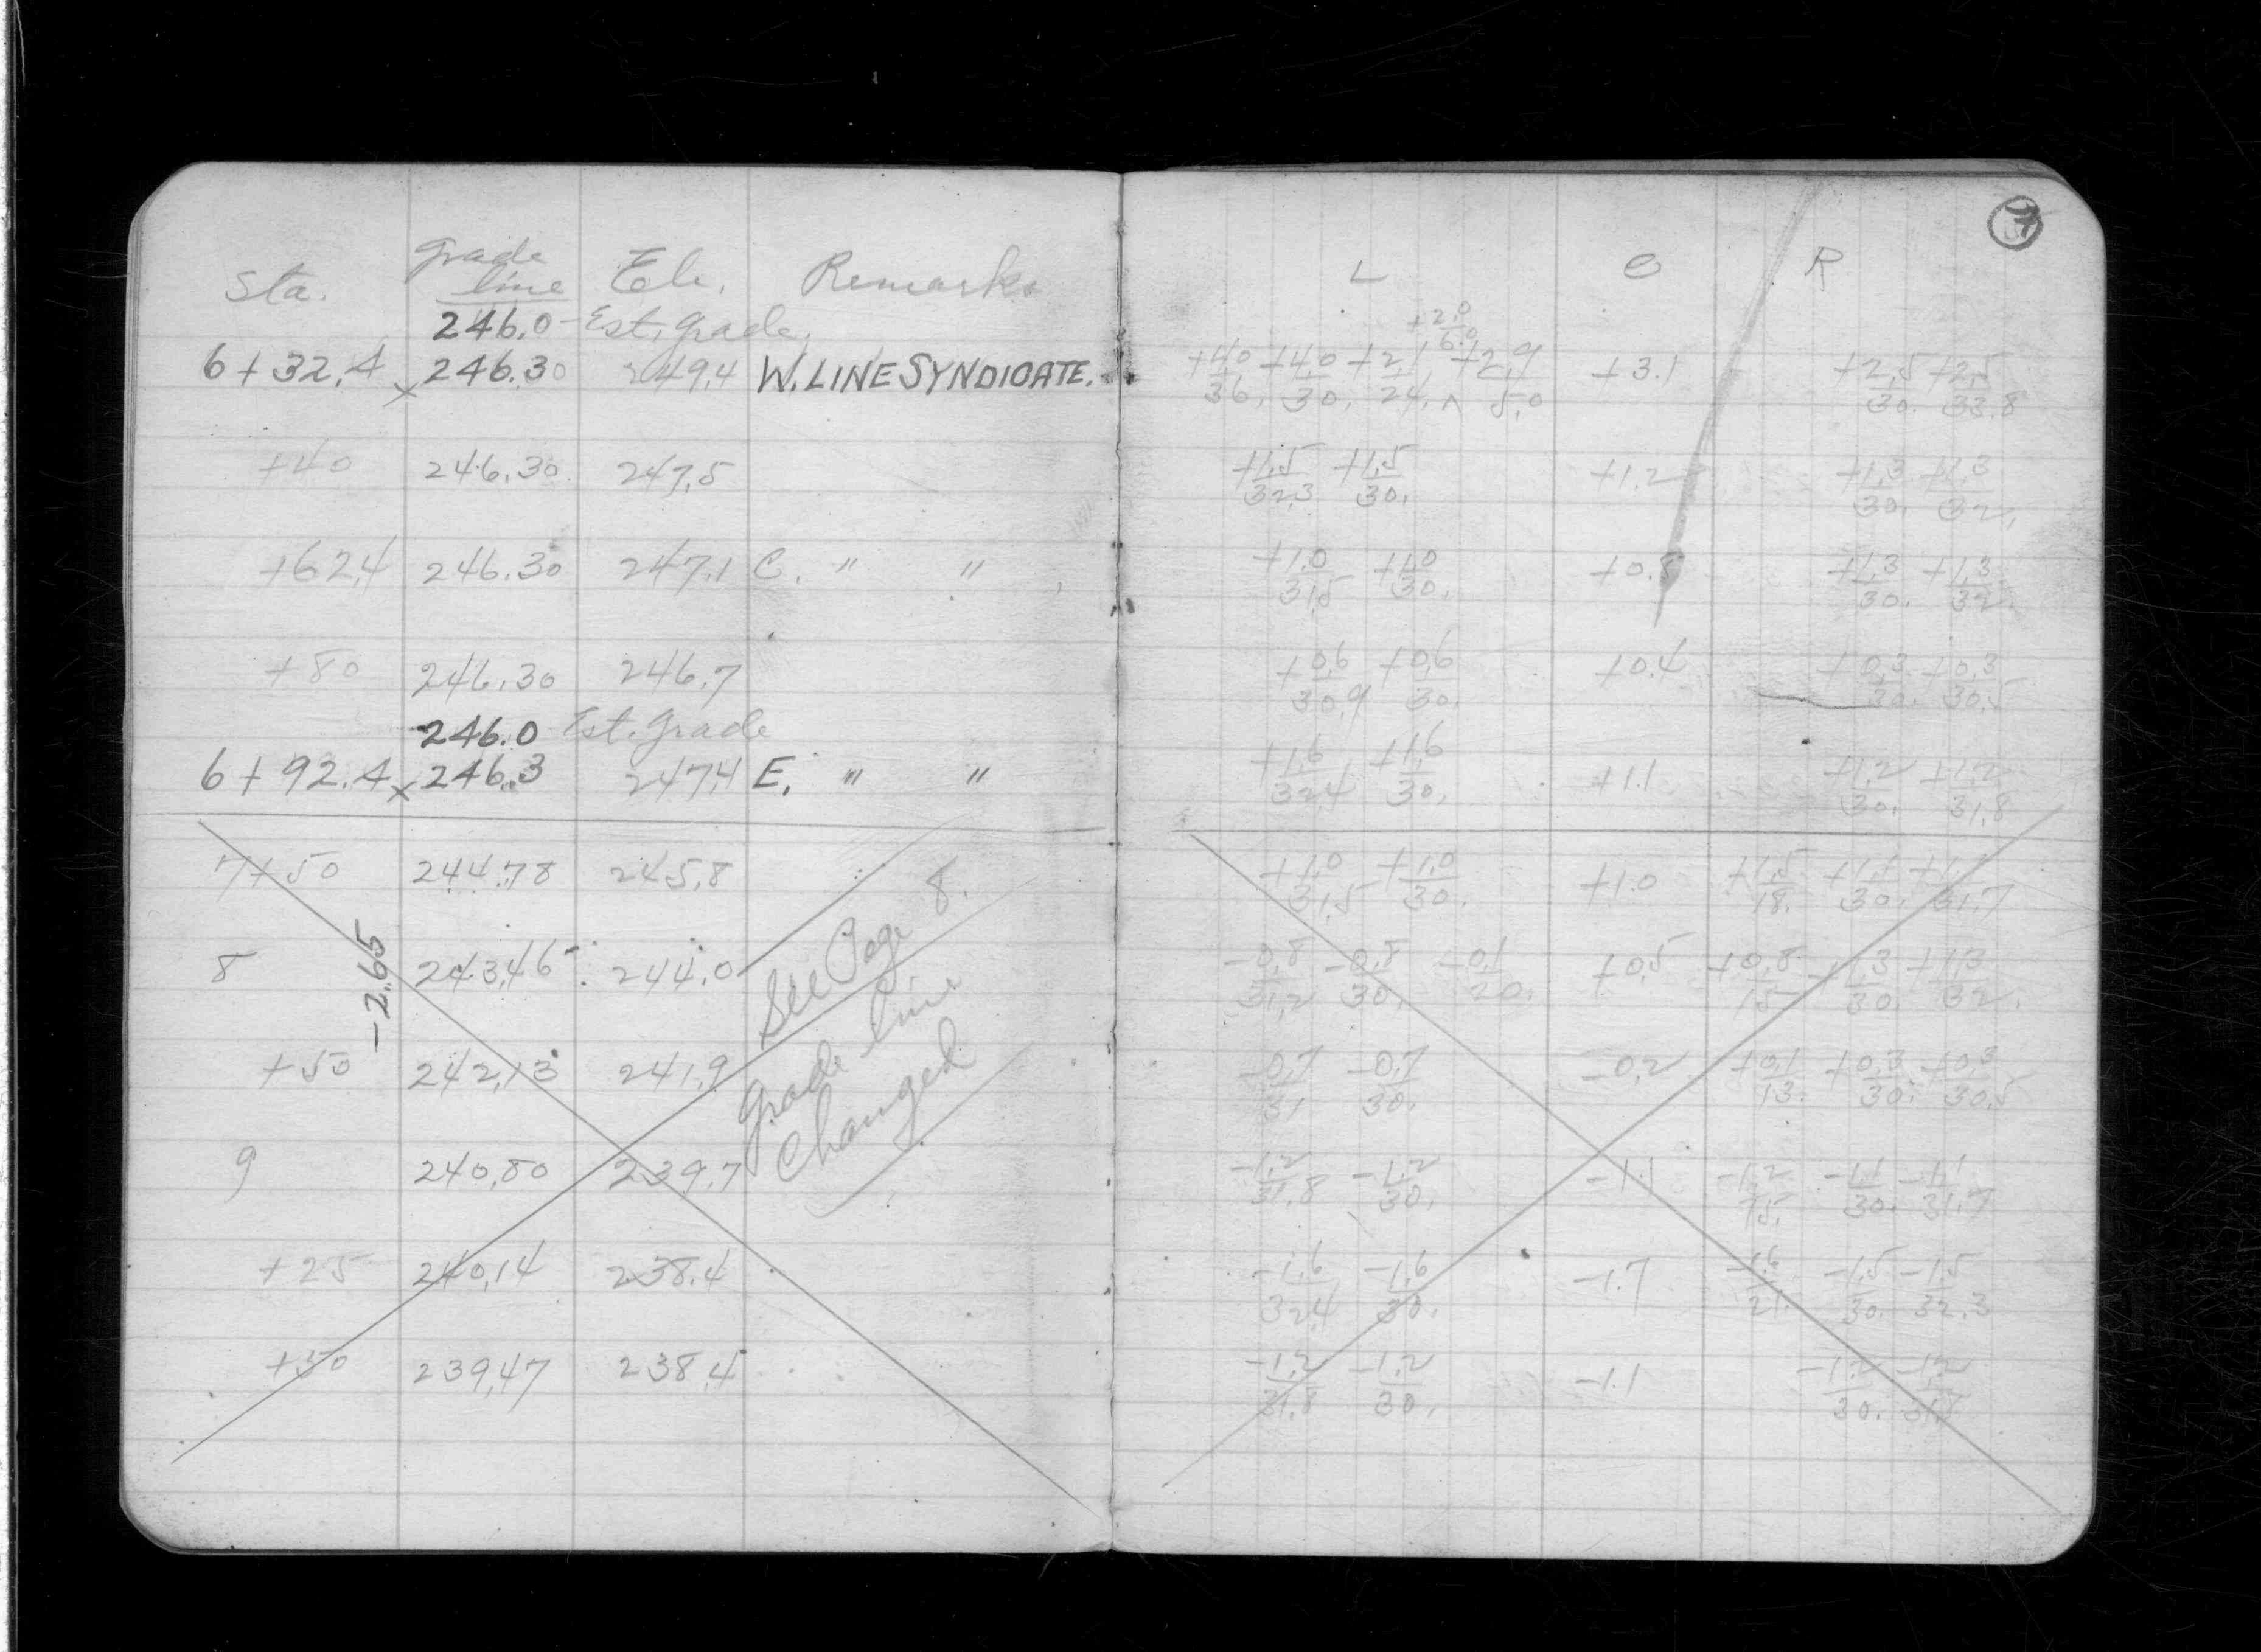 7
Sta. Grade line Ele. Remarks L C R
246.0 - Est. Grade. +2.0/6.0
6+32.4 x 246.30 249.4 W. LINE SYNDICATE. +4.0/36. +4.0/30. +2.1/24. ^ +2.9/5.0 +3.1 +2.5/30. +2.5/33.8
+40 246.30 247.5 +1.5/32.3 +1.5/30. +1.2 +1.3/30. +1.3/32.
+62.4 246.30 247.1 C. " " +1.0/31.5 +1.0/30. +0.8 +1.3/30. +1.3/32.
+80 246.30 246.7 +0.6/30.9 +0.6/30. +0.4 +0.3/30. +0.3/30.5
246.0 Est. Grade
6+92.4 x 246.3 247.4 E. " " +1.6/32.4 +1.6/30. +1.1 +1.2/30. +1.2/31.8
7+50 244.78 245.8 +1.0/31.5 +1.0/30. +1.0 +1.5/18. +1.1/30. +1.1/31.7
8 243.46 244.0 -0.8/31.2 -0.8/30. -0.1/20. +0.5 +0.8/15 +1.3/30. +1.3/32.
-2.65
See Page 8.
Grade line
Changed
+50 242.13 241.9 -0.7/31 -0.7/30. -0.2 +0.1/13. +0.3/30. +0.3/30.5
9 240.80 239.7 -1.2/31.8 -1.2/30. -1.1 -1.2/15. -1.1/30. -1.1/31.7
+25 240.14 238.4 -1.6/32.4 -1.6/30. -1.7 -1.6/21. -1.5/30. -1.5/32.3
+50 239.47 238.4 -1.2/31.8 -1.2/30. -1.1 -1.2/30. -1.2/31.8